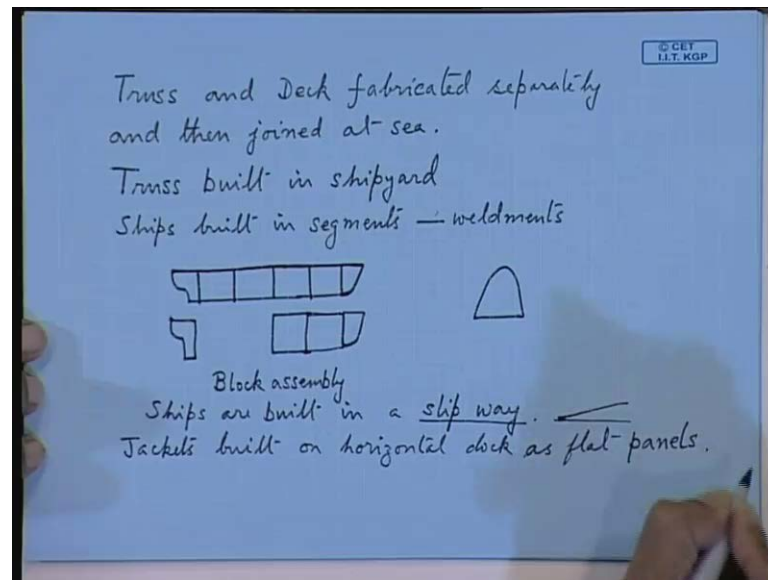 © CET
I.I.T. KGP
Truss and Deck fabricated separately
and then joined at sea.
Truss built in shipyard
Ships built in segments — weldments
Block assembly
Ships are built in a slip way.
Jackets built on horizontal dock as flat panels.